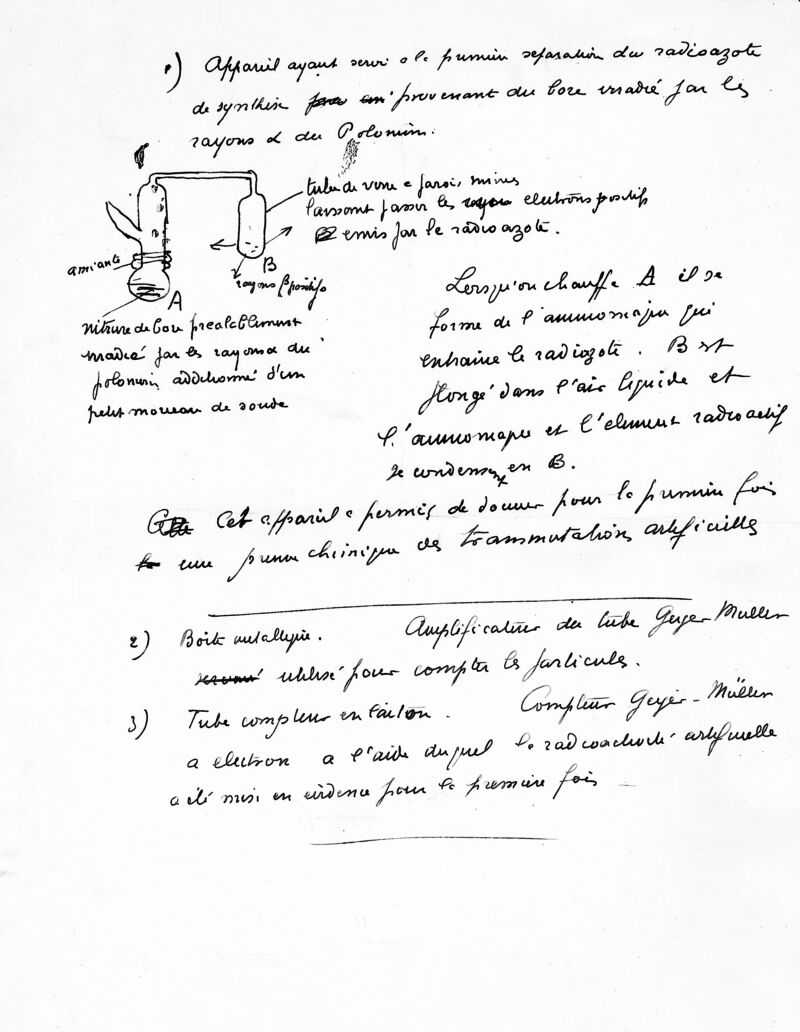 1) Appareil ayant servi a la premiere separation du radioazote
de synthèse provenant du bore irradié par les
rayons α du Polonium.
tube de verre a parois minces
laissant passer les electrons positifs
emis par le radioazote.
amiante
A
B
rayons β positifs
nitrure de bore prealablement
irradié par les rayons α du
polonium additionné d'un
petit morceau de soude
Lorsqu'on chauffe A il se
forme de l'ammoniaque qui
entraine le radiazote. B est
plongé dans l'air liquide et
l'ammoniaque et l'element radioactif
se condensent en B.
Cet appareil a permis de donner pour la premiere fois
une preuve chimique des transmutations artificielles
2) Boite metallique. Amplificateur du tube Geiger-Muller
utilisé pour compter les particules.
3) Tube compteur en laiton. Compteur Geiger-Müller
a electron a l'aide duquel la radioactivité artificielle
a été mise en evidence pour la premiere fois